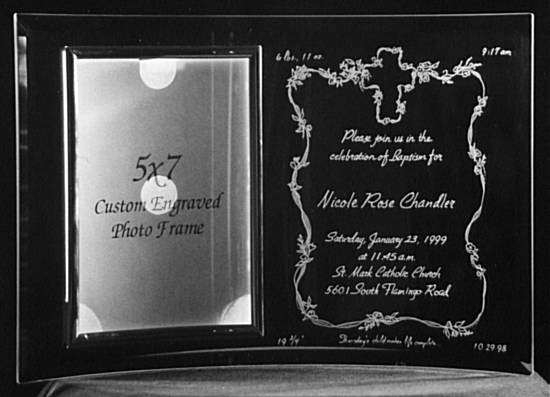 5x7
Custom Engraved
Photo Frame
6 lbs., 11 oz.
9:17 am
Please join us in the
celebration of Baptism for
Nicole Rose Chandler
Saturday, January 23, 1999
at 11:45 a.m.
St. Mark Catholic Church
5601 South Flamingo Road
19 3/4"
Thursday's child makes life complete
10·29·98